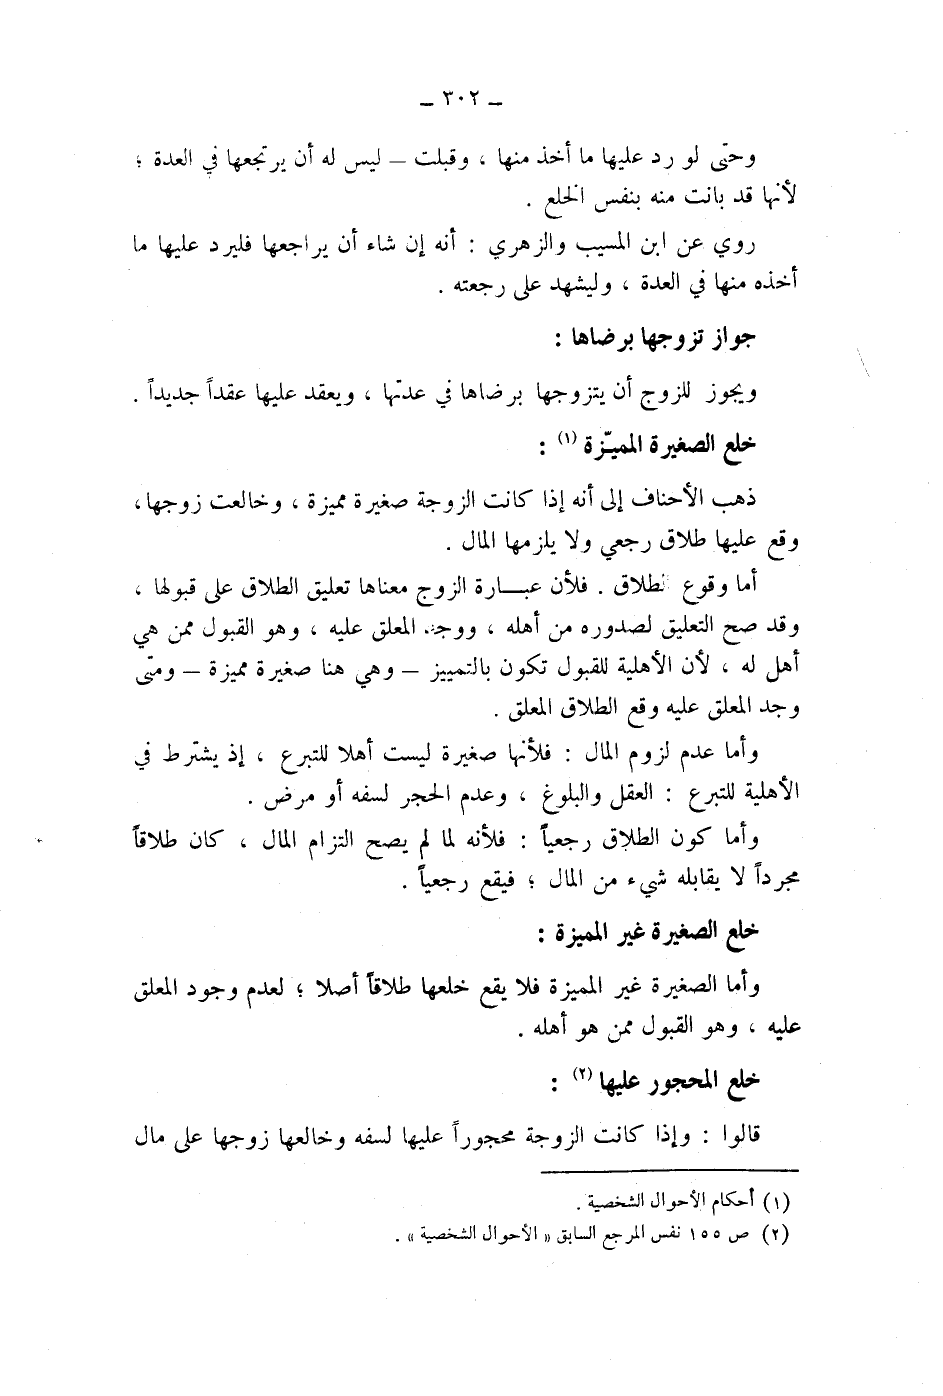 ــ ٣٠٢ ــ
وحتى لو رد عليها ما أخذ منها ، وقبلت – ليس له أن يرتجعها في العدة ؛
لأنها قد بانت منه بنفس الخلع .
روي عن ابن المسيب والزهري : أنه إن شاء أن يراجعها فليرد عليها ما
أخذه منها في العدة ، وليشهد على رجعته .
جواز تزوجها برضاها :
ويجوز للزوج أن يتزوجها برضاها في عدتها ، ويعقد عليها عقداً جديداً .
خلع الصغيرة المميّزة (١) :
ذهب الأحناف إلى أنه إذا كانت الزوجة صغيرة مميزة ، وخالعت زوجها ،
وقع عليها طلاق رجعي ولا يلزمها المال .
أما وقوع الطلاق . فلأن عبـــارة الزوج معناها تعليق الطلاق على قبولها ،
وقد صح التعليق لصدوره من أهله ، ووجد المعلق عليه ، وهو القبول ممن هي
أهل له ، لأن الأهلية للقبول تكون بالتمييز – وهي هنا صغيرة مميزة – ومتى
وجد المعلق عليه وقع الطلاق المعلق .
وأما عدم لزوم المال : فلأنها صغيرة ليست أهلا للتبرع ، إذ يشترط في
الأهلية للتبرع : العقل والبلوغ ، وعدم الحجر لسفه أو مرض .
وأما كون الطلاق رجعياً : فلأنه لما لم يصح التزام المال ، كان طلاقاً
مجرداً لا يقابله شيء من المال ؛ فيقع رجعياً .
خلع الصغيرة غير المميزة :
وأما الصغيرة غير المميزة فلا يقع خلعها طلاقاً أصلا ؛ لعدم وجود المعلق
عليه ، وهو القبول ممن هو أهله .
خلع المحجور عليها (٢) :
قالوا : وإذا كانت الزوجة محجوراً عليها لسفه وخالعها زوجها على مال
(١) أحكام الأحوال الشخصية .
(٢) ص ١٥٥ نفس المرجع السابق « الأحوال الشخصية » .